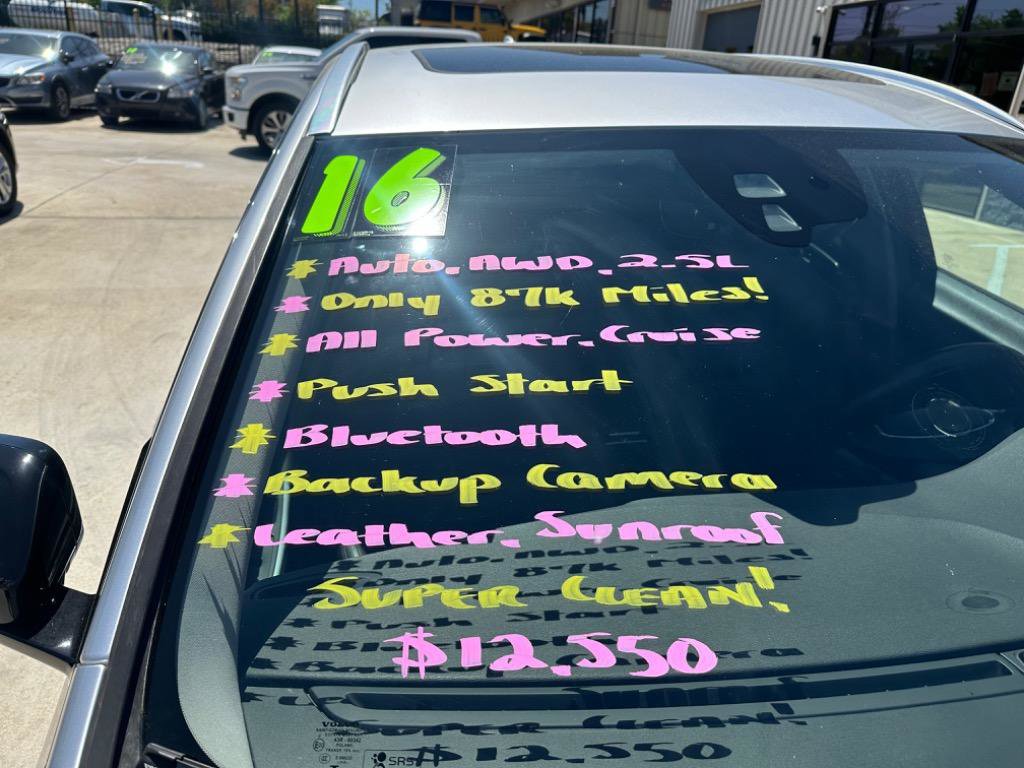 16
* Auto, AWD, 2.5L
* Only 87k Miles!
* All Power, Cruise
* Push Start
* Bluetooth
* Backup Camera
* Leather, Sunroof
Super Clean!
$12,550
VOLVO
SRS